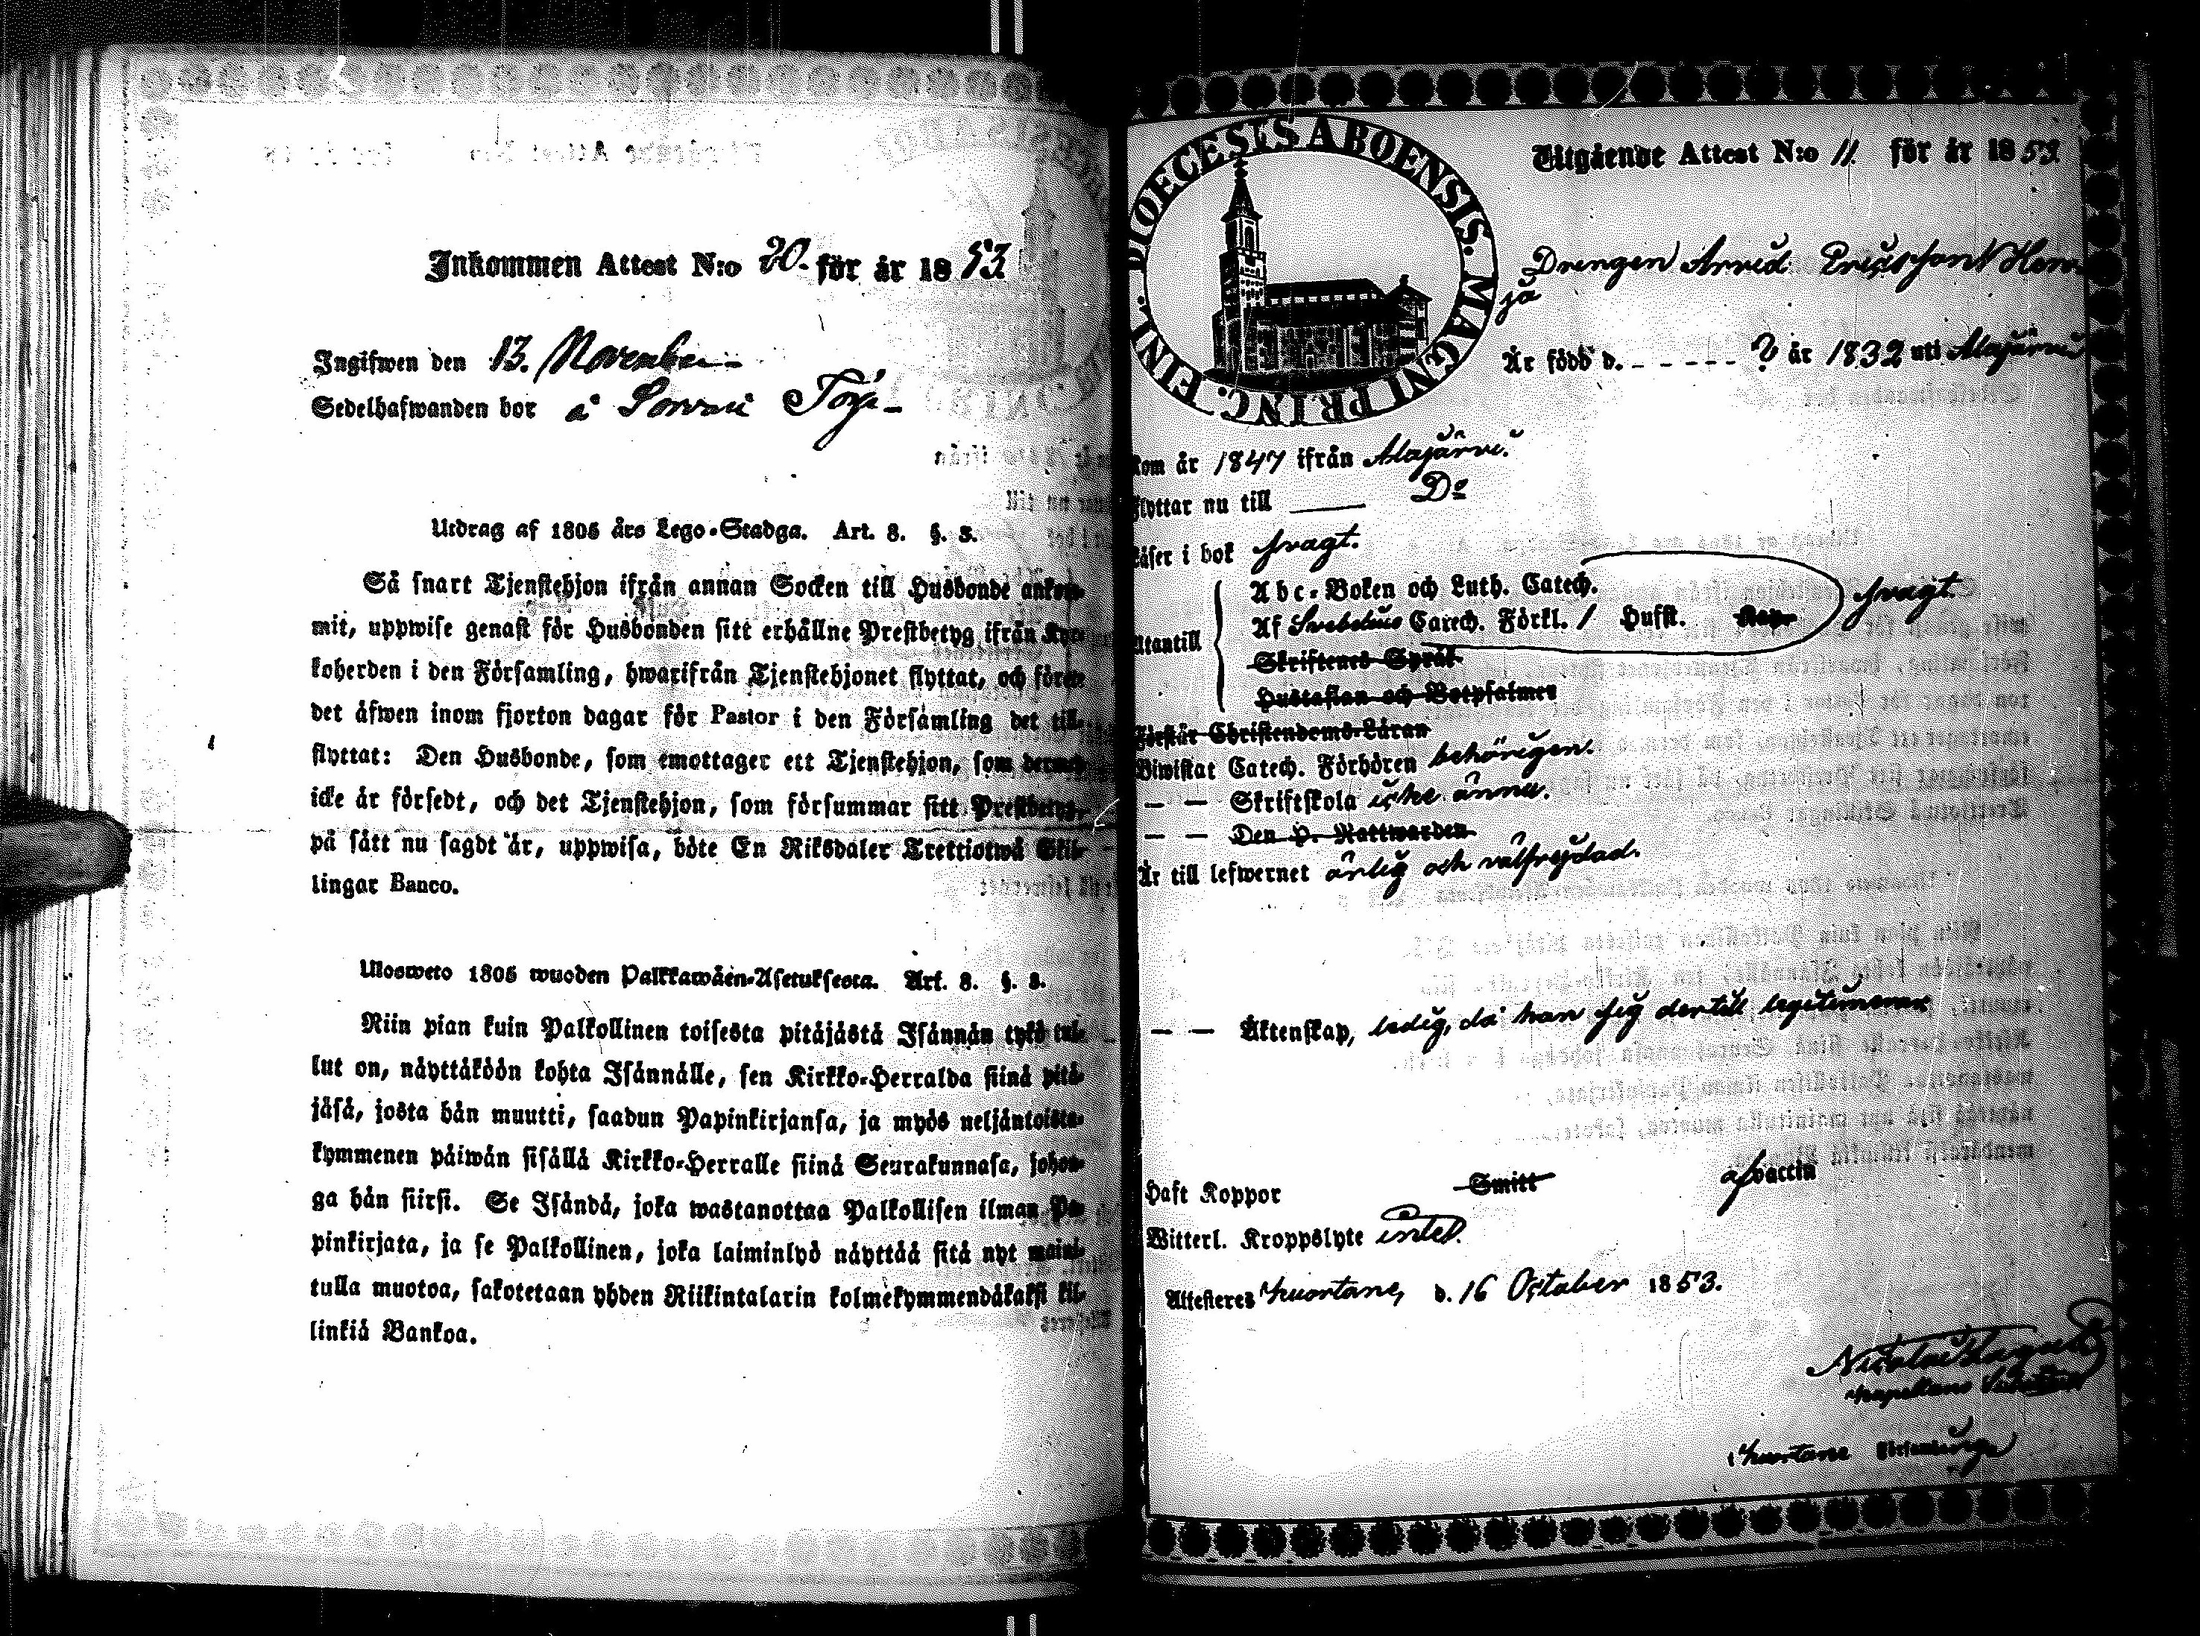 Inkommen Attest N:o 20. för år 1853.
Ingifwen den 13. November
Sedelhafwanden bor å
Utdrag af 1805 års Lego-Stadga. Art. 8. §. 3.
Så snart Tjenstehjon ifrån annan Socken till Husbonde ankom-
mit, uppwise genast för Husbonden sitt erhållne Prestbetyg ifrån Kyr-
koherden i den Församling, hwarifrån Tjenstehjonet flyttat, och förete
det äfwen inom fjorton dagar för Pastor i den Församling det till-
flyttat: Den Husbonde, som emottager ett Tjenstehjon, som dermed
icke är försedt, och det Tjenstehjon, som försummar sitt Prestbetyg,
på sätt nu sagdt är, uppwisa, böte En Riksdaler Trettiotwå Skil-
lingar Banco.
Ulosweto 1805 wuoden Palkkawäen-Asetuksesta. Art. 8. §. 3.
Niin pian kuin Palkollinen toisesta pitäjästä Isännän tykö tul-
lut on, näyttäköön kohta Isännälle, sen Kirkko-Herralda siinä pitä-
jäsä, josta hän muutti, saadun Papinkirjansa, ja myös neljäntoista-
kymmenen päiwän sisällä Kirkko-Herralle siinä Seurakunnasa, johon-
ga hän siirsi. Se Isändä, joka wastanottaa Palkollisen ilman Pa-
pinkirjata, ja se Palkollinen, joka laiminlyö näyttää sitä nyt maini-
tulla muotoa, sakotetaan yhden Riikintalarin kolmekymmendäkaksi kil-
linkiä Bankoa.
DIOECESIS ABOENSIS. MAGNI PRINC. FINL.
Utgående Attest N:o 11. för år 1853.
Drengen Arvid Ericsson
Är född d. - - - - - ? år 1832 uti Alajärvi
Kom år 1847 ifrån Alajärvi.
Flyttar nu till — Do
Läser i bok svagt.
Utantill
Abc-Boken och Luth. Catech.
Af Svebelius Catech. Förkl. / Hufst. svagt.
Skriftenes Språk
Hustaflan och Botpsalmer
Förstår Christendoms-Läran
Biwistat Catech. Förhören behörigen.
— — Skriftskola icke ännu.
— — Den H. Nattwarden
Är till lefwernet ärlig och välfrejdad.
— — Äktenskap, ledig, då han sig dertill legitimerar
Haft Koppor Smitt af vaccin
Witterl. Kroppslyte intet.
Attesteres Kuortane, d. 16 October 1853.
Kuortane Församling